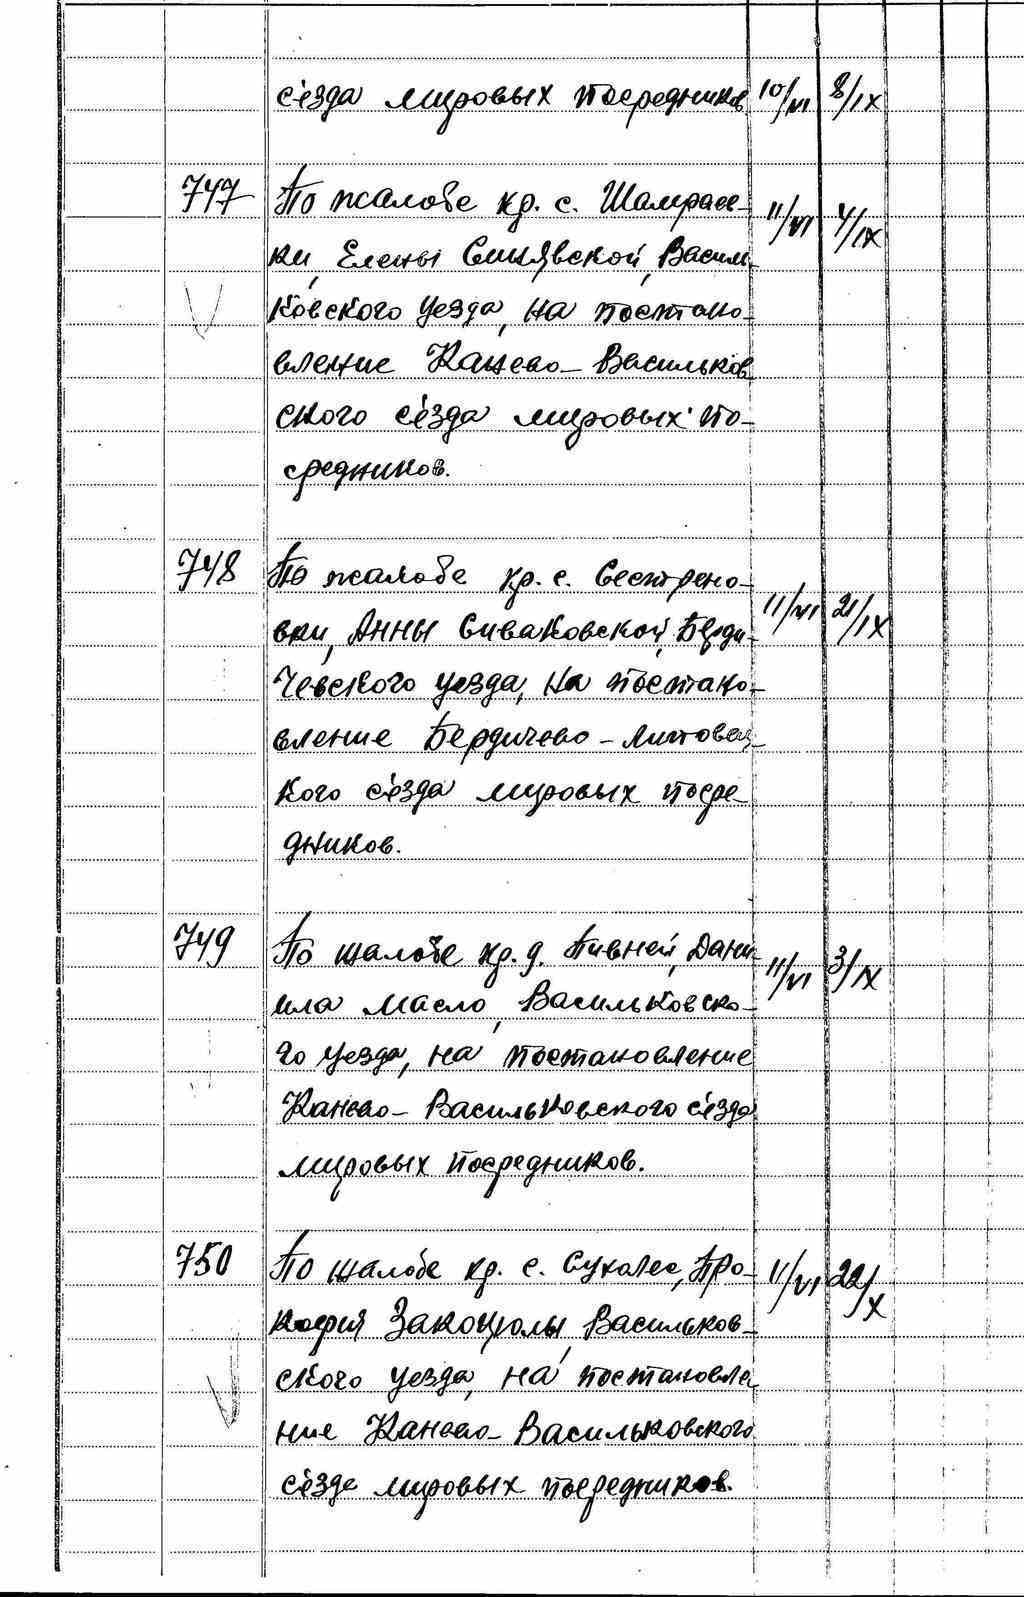 с'езда мировых посредников 10/VI 8/IX
747 По жалобе кр. с. Шамраев- 11/VI 4/IX
ки, Елены Синявской, Василь-
ковского уезда, на постано-
вление Канево-Васильков
ского с'езда мировых по-
средников.
748 По жалобе кр. с. Сестрено-
вки, Анны Сиваковской, Берди- 11/VI 21/IX
чевского уезда, на постано-
вление Бердичево-Липовец-
кого с'езда мировых посре-
дников.
749 По жалобе кр. д. Пивней, Дани- 11/VI 3/IX
ила Масло, Васильковско-
го уезда, на постановление
Канево-Васильковского с'езда
мировых посредников.
750 По жалобе кр. с. Сухолес, Про- 11/VI 22/X
кофия Закоцюлы, Васильков-
ского уезда, на постановле
ние Канево-Васильковского
с'езда мировых посредников.